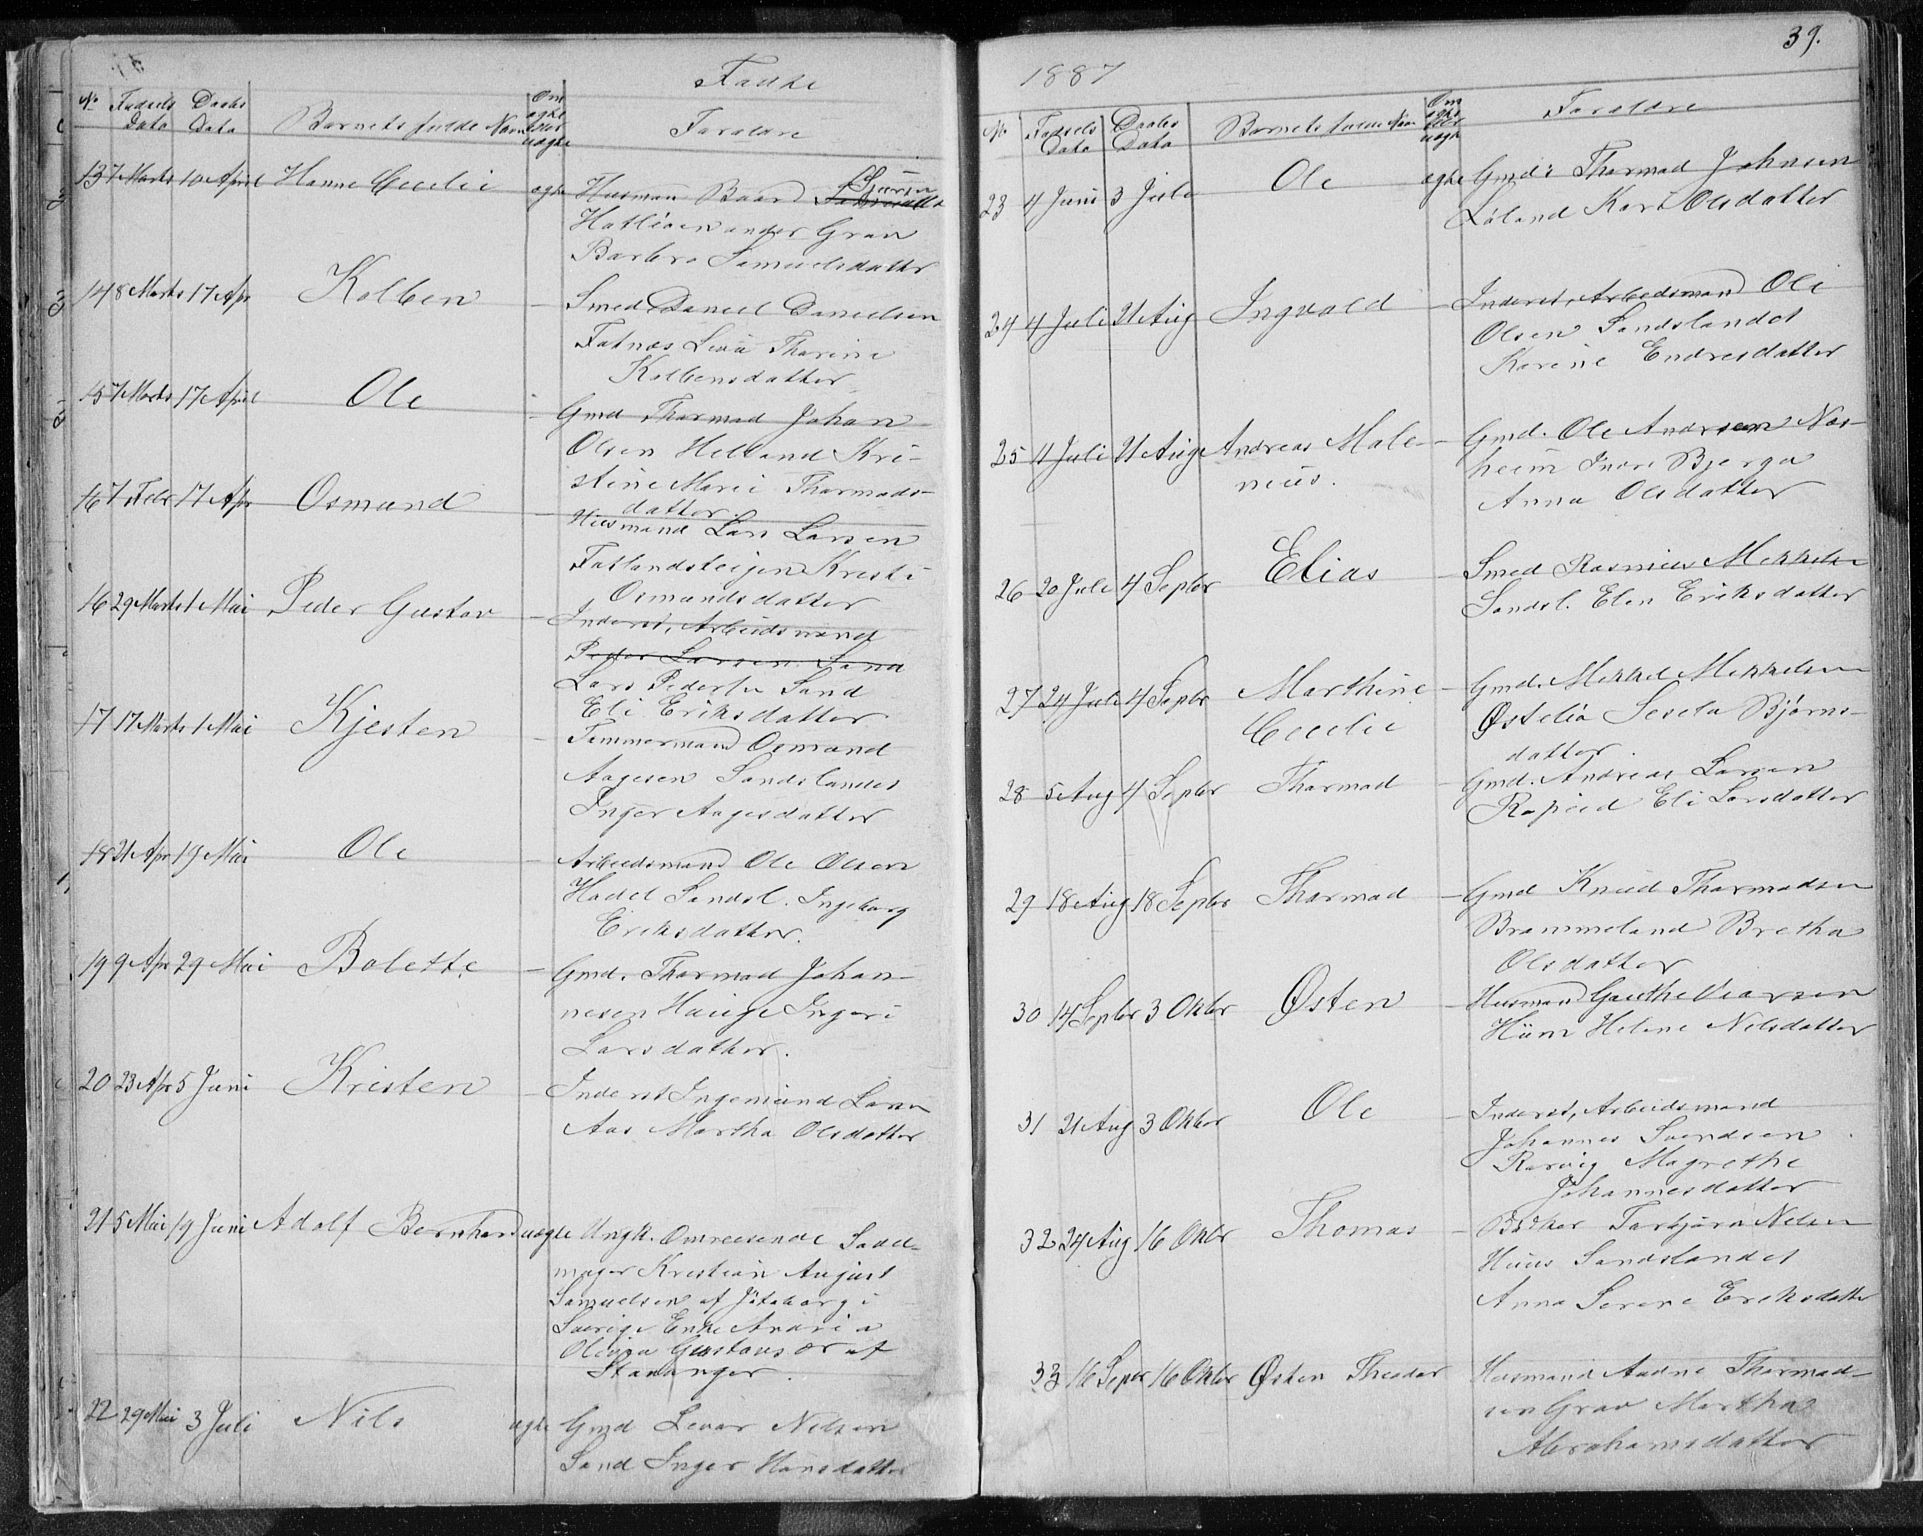 Fødte
No Fødsels Data Daabs Data Barnets fulde Navn Om ægte eller uægte Forældre
13 7 Marts 10 April Hanne Cecelie ægte Husmand Baard Sjursen
Hatløen under Grav
Barbro Samuelsdatter
14 8 Marts 17 Apr Kolben - Smed Daniel Danielsen
Fatnæs Lava Thorine
Kolbensdatter
15 7 Marts 17 April Ole - Gmd Thormod Johan
Olsen Helland Kri-
stine Marie Thormods-
datter
16 7 Feb 17 Apr Osmund - Husmand Lars Larsen
Fatlandsteigen Kristi
Osmundsdatter
16 29 Marts 1 Mai Peder Gustav - Inderst, Arbeidsmand
Peder Larsen Sand
Lars Pedersen Sand
Eli Eriksdatter
17 17 Marts 1 Mai Kjesten - Tømmermand Osmund
Aagesen Sandslandet
Inger Aagesdatter
18 21 Apr 19 Mai Ole - Arbeidsmand Ole Olsen
Hadel Sandsl. Ingeborg
Eriksdatter.
19 9 Apr 29 Mai Bolette - Gmd. Thormod Johan-
nesen Hauge Ingeri
Larsdatter.
20 23 Apr 5 Juni Kristen - Inderst Ingemund Larsen
Aas Martha Olsdatter
21 5 Mai 19 Juni Adolf Bernhard uægte Ungk. Omreisende Sadel-
mager Kristian August
Samuelsen af Jøteborg i
Sverige Enke Andrea
Olivia Gustavsdr af
Stavanger.
22 29 Mai 3 Juli Nils ægte Gmd Levar Nilsen
Sand Inger Hansdatter
39.
1887
No Fødsels Data Daabs Data Barnets fulde Navn Om ægte eller uægte Forældre
23 4 Juni 3 Juli Ole ægte Gmd: Thormod Johnsen
Løland Kari Olsdatter
24 4 Juli 21 Aug Ingvald - Inderst, Arbeidsmand Ole
Olsen Sandslandet
Karine Endresdatter
25 11 Juli 21 Aug Andreas Male- - Gmd. Ole Andersen Næs-
nius. heim Indre Bjerga
Anna Olsdatter
26 20 Juli 4 Septbr Elias - Smed Rasmus Mekkelsen
Sandsl. Elen Eriksdatter
27 24 Juli 4 Septbr Marthine - Gmd. Mekkel Mekkelsen
Cecelie Østeliø Sesela Bjørns-
datter.
28 5 Aug 4 Septbr Thormod - Gmd. Andreas Larsen
Eli Larsdatter
29 18 Aug 18 Septbr Thormod - Gmd Knud Thormodsen
Brommeland Bretha
Olsdatter
30 14 Septbr 3 Oktbr Østen - Husmand Gauthe
Hüm Helene Nilsdatter
31 21 Aug 3 Oktbr Ole - Inderst, Arbeidsmand
Johannes Svendsen
Rørvig Magrethe
Johannesdatter
32 24 Aug 16 Oktbr Thomas - Torbjørn Nilsen
Huus Sandslandet
Anna Serine Eriksdatter
33 16 Septbr 16 Oktbr Østen Theodor Husmand Aadne Thormod-
sen Grav Martha
Abrahamsdatter